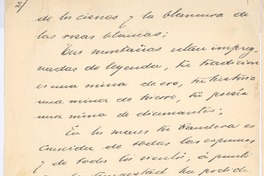 2/
de los cisnes y la blancura de
las rosas blancas;
Tus montañas están impreg-
nadas de leyenda, tu tradición
es una mina de oro, tu historia
una mina de hierro, tu poesía
una mina de diamantes;
En los mares tu bandera es
conocida de todas las espumas
y de todos los vientos, á punto
la tempestad ha podido